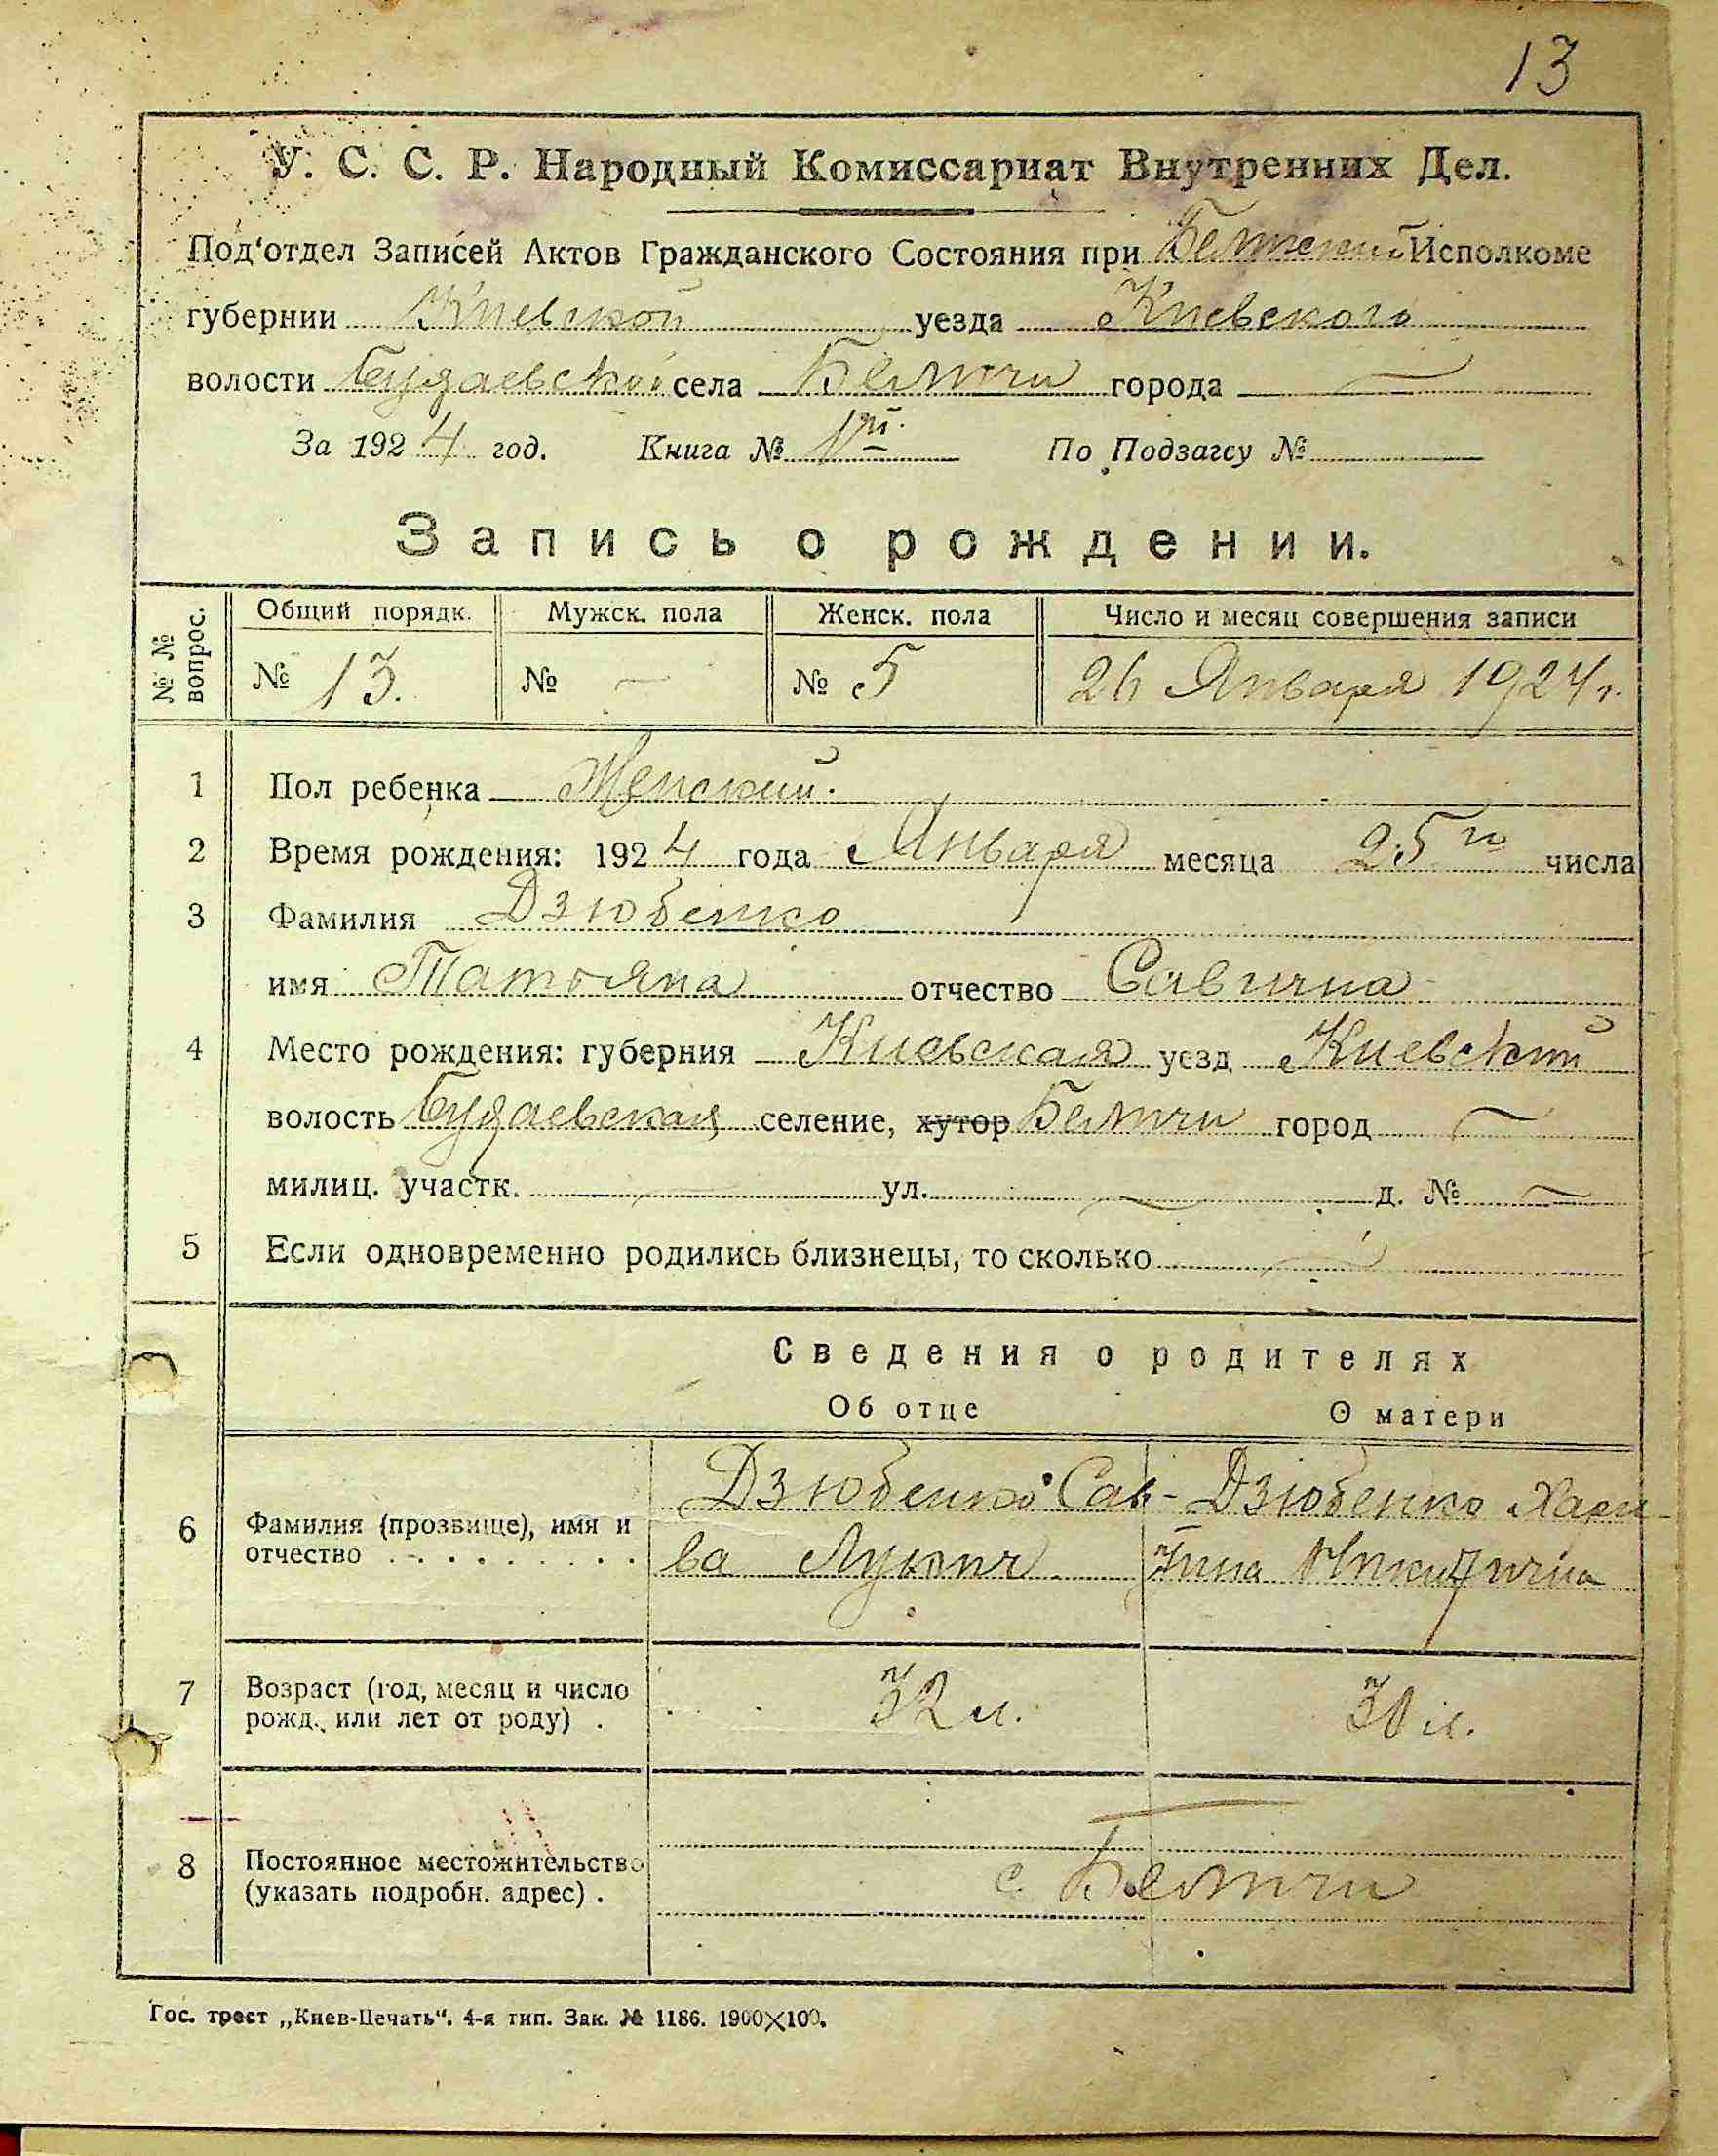 13
У. С. С. Р. Народный Комиссариат Внутренних Дел.
Под‘отдел Записей Актов Гражданского Состояния при Исполкоме
губернии Киевской уезда Киевского
волости Будаевской села Белгичи города —
За 1924 год. Книга № 1й. По Подзагсу №
Запись о рождении.
№ № вопрос. Общий порядк. Мужск. пола Женск. пола Число и месяц совершения записи
№ 13. № — № 5 26 Января 1924 г.
1 Пол ребенка Женский.
2 Время рождения: 1924 года Января месяца 25го числа
3 Фамилия Дзюбенко
имя Татьяна отчество Саввична
4 Место рождения: губерния Киевская уезд Киевский
волость Будаевская селение, хутор Белгичи город —
милиц. участк. — ул. — д. № —
5 Если одновременно родились близнецы, то сколько —
Сведения о родителях
Об отце О матери
6 Фамилия (прозвище), имя и отчество Дзюбенко Сав- Дзюбенко Хари-
ва Лукич тина Никитична
7 Возраст (год, месяц и число рожд., или лет от роду) . 32 л. 30 л.
8 Постоянное местожительство (указать подробн. адрес) . с. Белгичи
Гос. трест „Киев-Печать“. 4-я тип. Зак. № 1186. 1900×100.